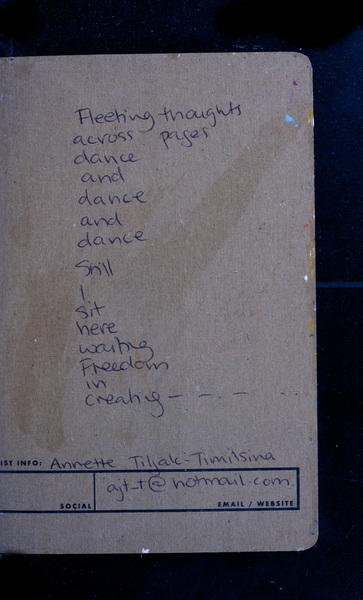 Fleeting thoughts
across pages
dance
and
dance
and
dance
Still
I
sit
here
waiting
Freedom
in
creating - - . - ...
IST INFO: Annette Tiljak-Timilsina
ajt_t@hotmail.com
SOCIAL
EMAIL / WEBSITE